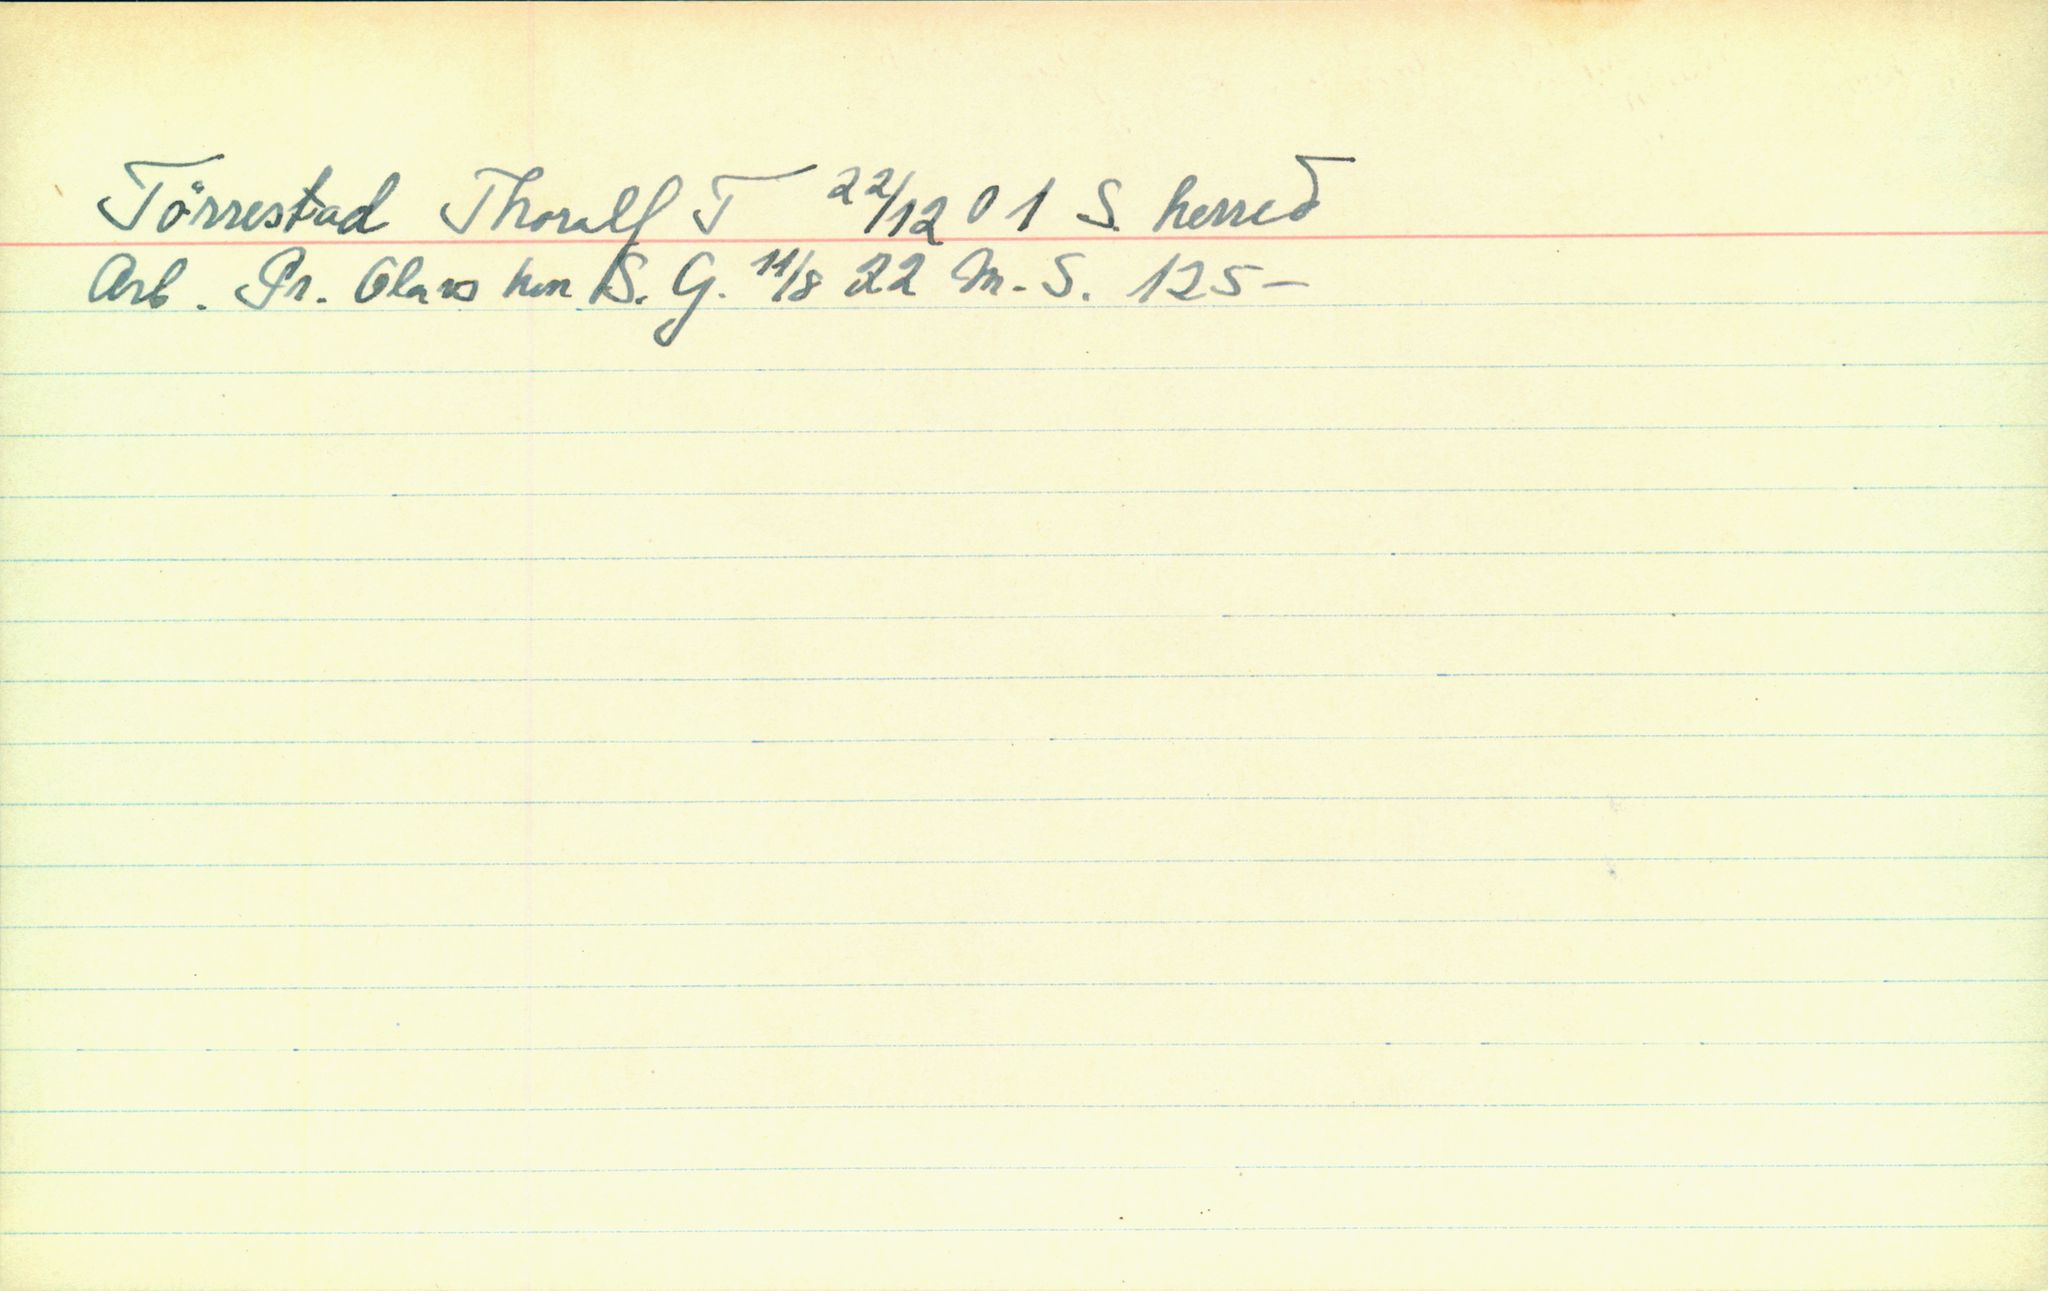 Törrestad Thoralf T 22/12 01 S. herred
Arb. Pr. Olavs S. G. 11/8 22 M. S. 125-